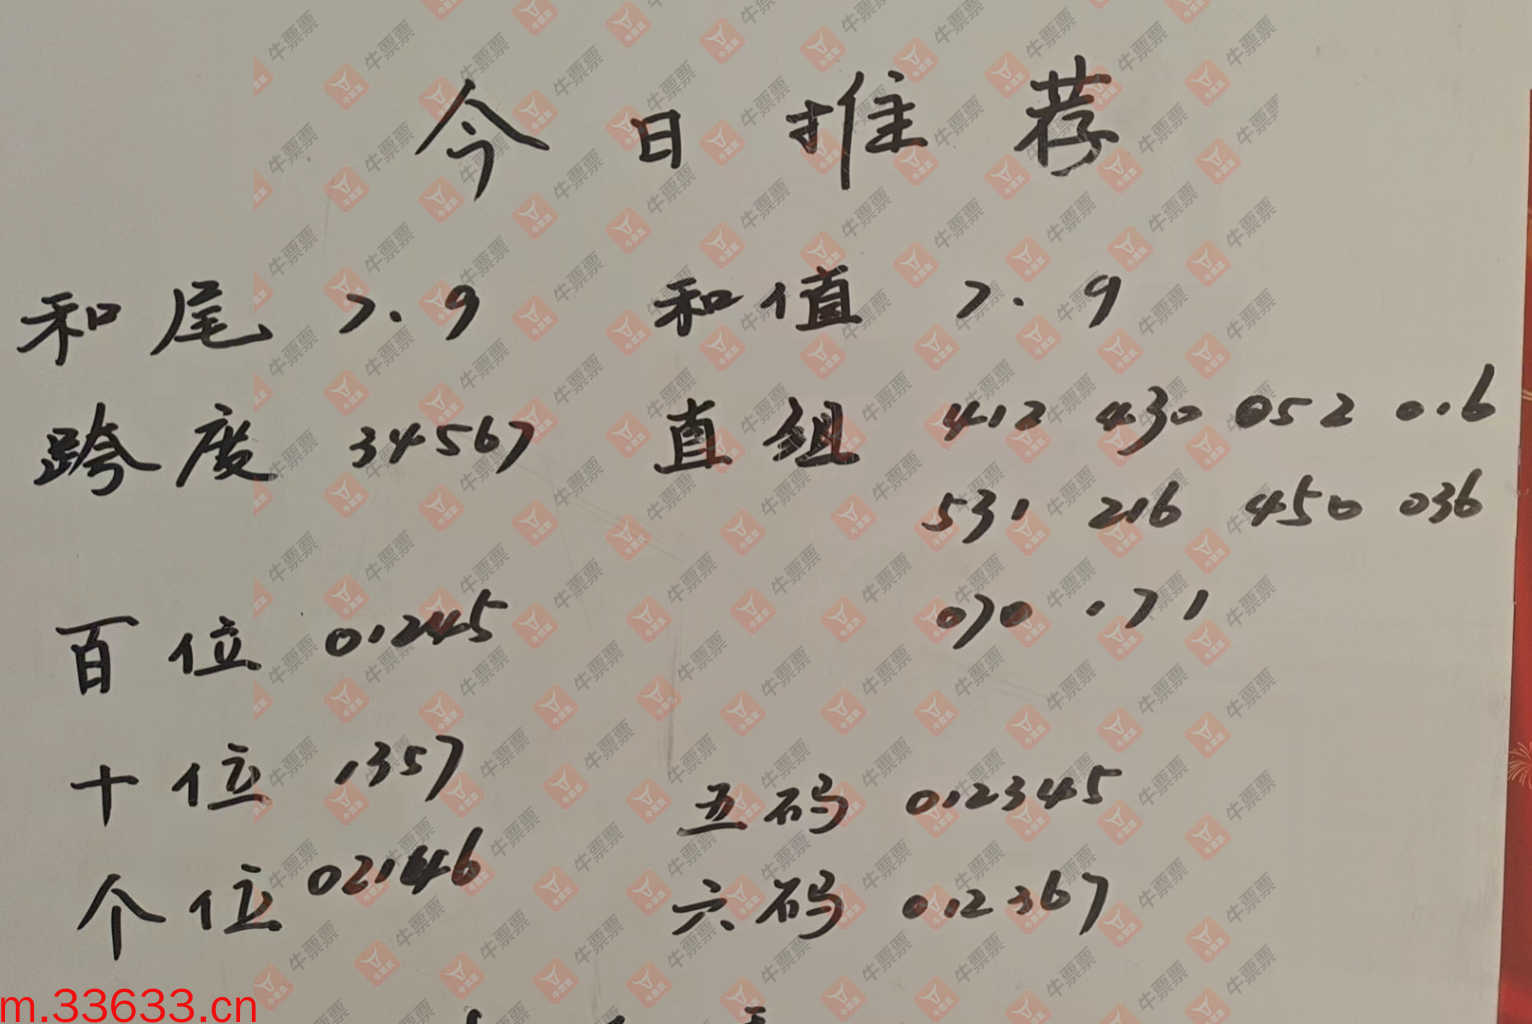 今日推荐
和尾 7.9 和值 7.9
跨度 34567 直组 412 430 052 016
531 216 450 036
百位 01245 070 171
十位 1357
五码 012345
个位 02146
六码 012367
m.33633.cn
牛票票